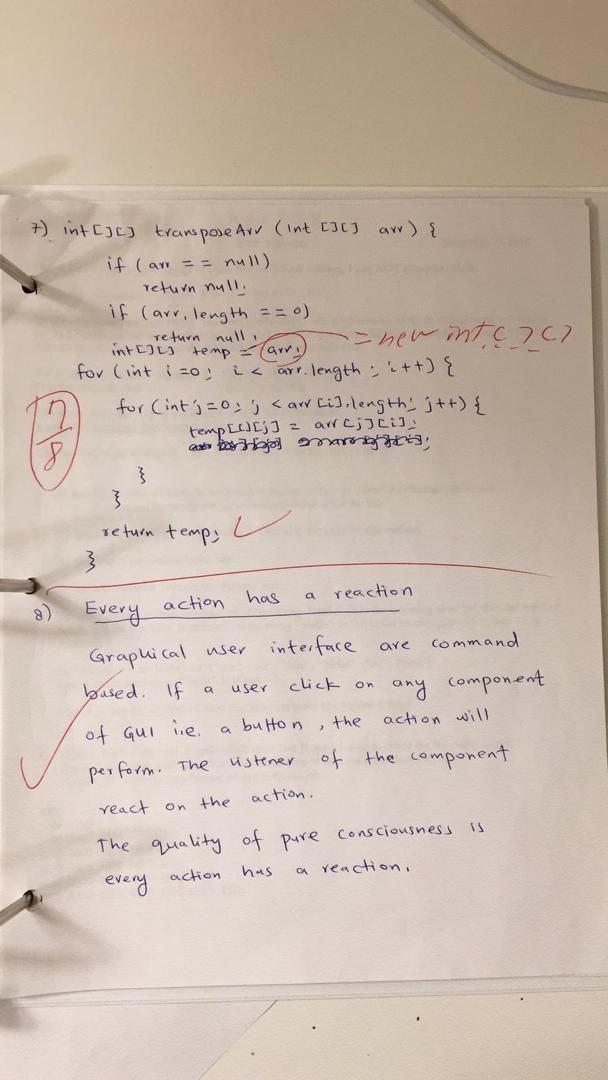 7) int[][] transposeArr (Int [][] arr) {
if (arr == null)
return null;
if (arr.length ==0)
return null;
int[][] temp = arr; = new int[][]
for (int i=0; i < arr.length; i++) {
7/8
for (int j=0; j < arr[i].length; j++) {
temp[i][j] = arr[j][i];
}
}
return temp;
}
8) Every action has a reaction
Graphical user interface are command
based. If a user click on any component
of GUI i.e. a button, the action will
perform. The listener of the component
react on the action.
The quality of pure consciousness is
every action has a reaction.